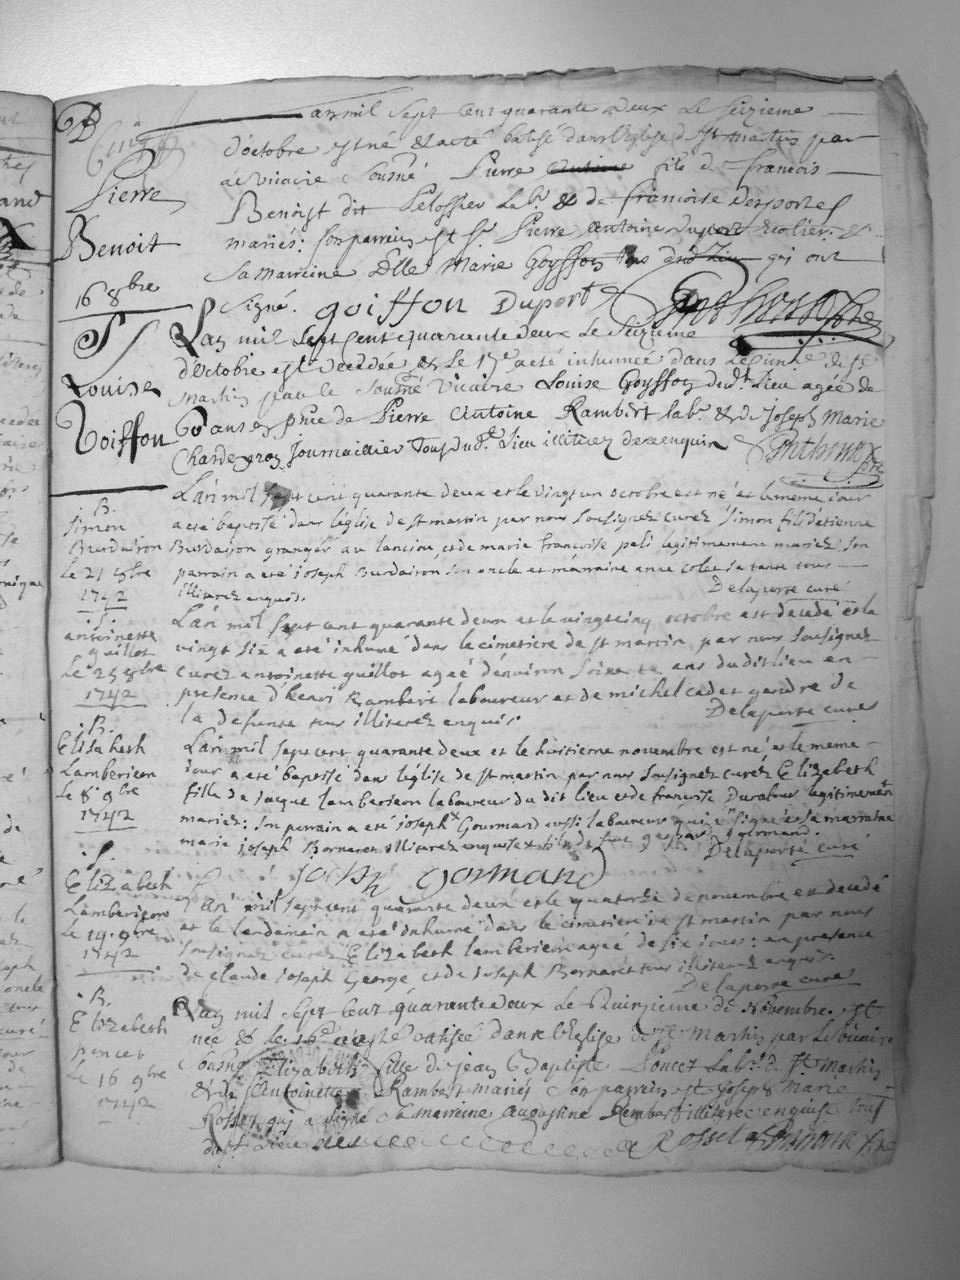 B
Pierre
Benoit
16 8bre
L'an mil sept cent quarante deux Le seizieme
d'octobre est né & a eté batisé dans l'eglise d St Martin par
le vicaire sousné Pierre fils d francois
Benoist dit Pelossier Labr & de francoise desportes
mariés: son parrein est Sr Pierre Antoine duport Ecolier. &
sa marreine dlle Marie Goyffon qui ont
signé. goiffon Duport
S
Louise
Goiffon
L'an mil sept cent quarante deux Le seizieme
d'octobre est decedée & le 17e a eté inhumée dans le de st
martin par le sousné vicaire Louise Goyffon dudt Lieu agée de
60 ans en pnce de Pierre Antoine Rambert labr & de Joseph Marie
Chardegros Journallier Tous dudt Lieu illiterez de ce enquis
B.
simon
Burdairon
le 21 8bre
1742
L'an mil sept cent quarante deux et le vingt un octobre est né et le meme jour
a eté baptisé dans l'eglise de st martin par nous soussignez curez simon fils d'etienne
Burdairon granger au et de marie francoise legitimement mariez, son
parrain a eté joseph Burdairon son oncle et marraine sa tante tous
illiterez enquis. Delaporte curé
S.
antoinette
guillot
le 25 8bre
1742
L'an mil sept cent quarante deux et le vingt cinq octobre est decedé et le
vingt six a eté inhumé dans le cimetiere de st martin, par nous soussignez
curez antoinette guillot ageé d'environ soixante ans du dit lieu en
presence d'henri Rambert laboureur et de michel cadet gendre de
la defunte tous illiterez enquis. Delaporte curé
B.
Elisabeth
Lamberieon
le 8 9bre
1742
L'an mil sept cent quarante deux et le huitieme novembre est né et le meme
jour a eté baptisé dans l'eglise de st martin par nous soussignez curez Elizabeth
fille de jacque lamberieon laboureur du dit lieu et de francoise Durafour legitimement
mariez: son parrain a eté joseph Gourmand aussi laboureur qui a signé et sa marraine
marie joseph Bornaret illiterez enquise Delaporte curé
joseph gormand
S.
Elizabeth
Lamberieon
le 14 9bre
1742
L'an mil sept cent quarante deux et le quatorze de novembre est decedé
et le lendemain a eté inhumé dans le cimetiere de st martin par nous
soussignez curez Elizabeth lamberieon ageé de six jours: en presence
de claude joseph George et de joseph Bornaret tous illiterez enquis.
Delaporte curé
B.
Elizabeth
poncet
le 16 9bre
1742
L'an mil sept cent quarante deux Le Quinzieme de Novembre est
née & le 16e a eté batisée dans l'Eglise de st Martin par Le vicaire
sousné Elizabeth fille de jean Baptiste Poncet Labr d st Martin
& de Antoinette Rambert mariés son parrein est Joseph Marie
Rosset qui a signé sa marreine augustine Rembert illiterée enquise tous
dudt Lieu Rosset